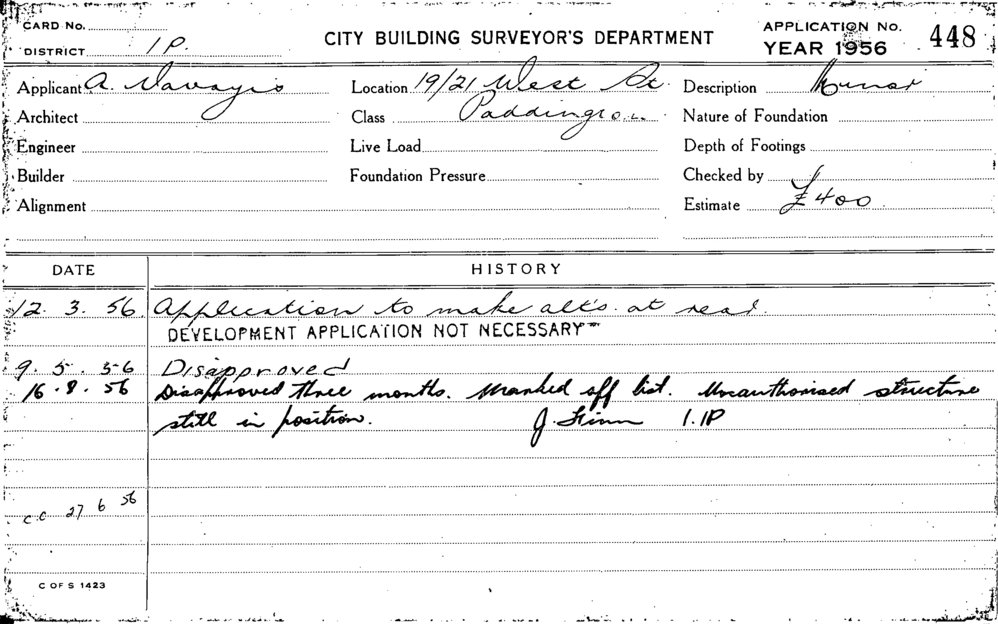 CARD No.
DISTRICT 1P.
CITY BUILDING SURVEYOR'S DEPARTMENT
APPLICATION No. 448
YEAR 1956
Applicant A. Location 19/21 West St. Description Minor
Architect Class Paddington. Nature of Foundation
Engineer Live Load Depth of Footings
Builder Foundation Pressure Checked by
Alignment Estimate £400
DATE HISTORY
12. 3. 56. Application to make alt's. at rear.
DEVELOPMENT APPLICATION NOT NECESSARY
9. 5. 56 Disapproved
16. 8. 56 Disapproved three months. Marked off list. Unauthorised structure
still in position. J. 1. 1P
C.C 27 6 56
C OF S 1423